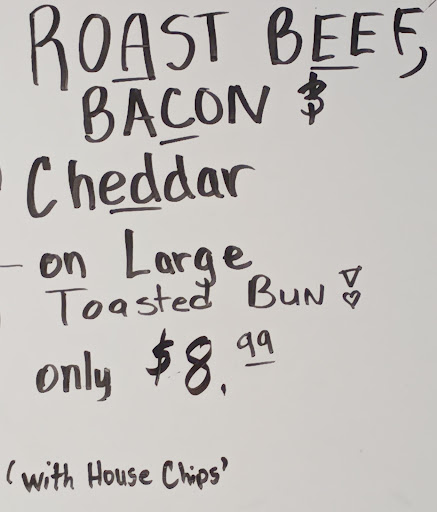 ROAST BEEF,
BACON &
Cheddar
- on Large
Toasted BUN!
only $8.99
(with House Chips'